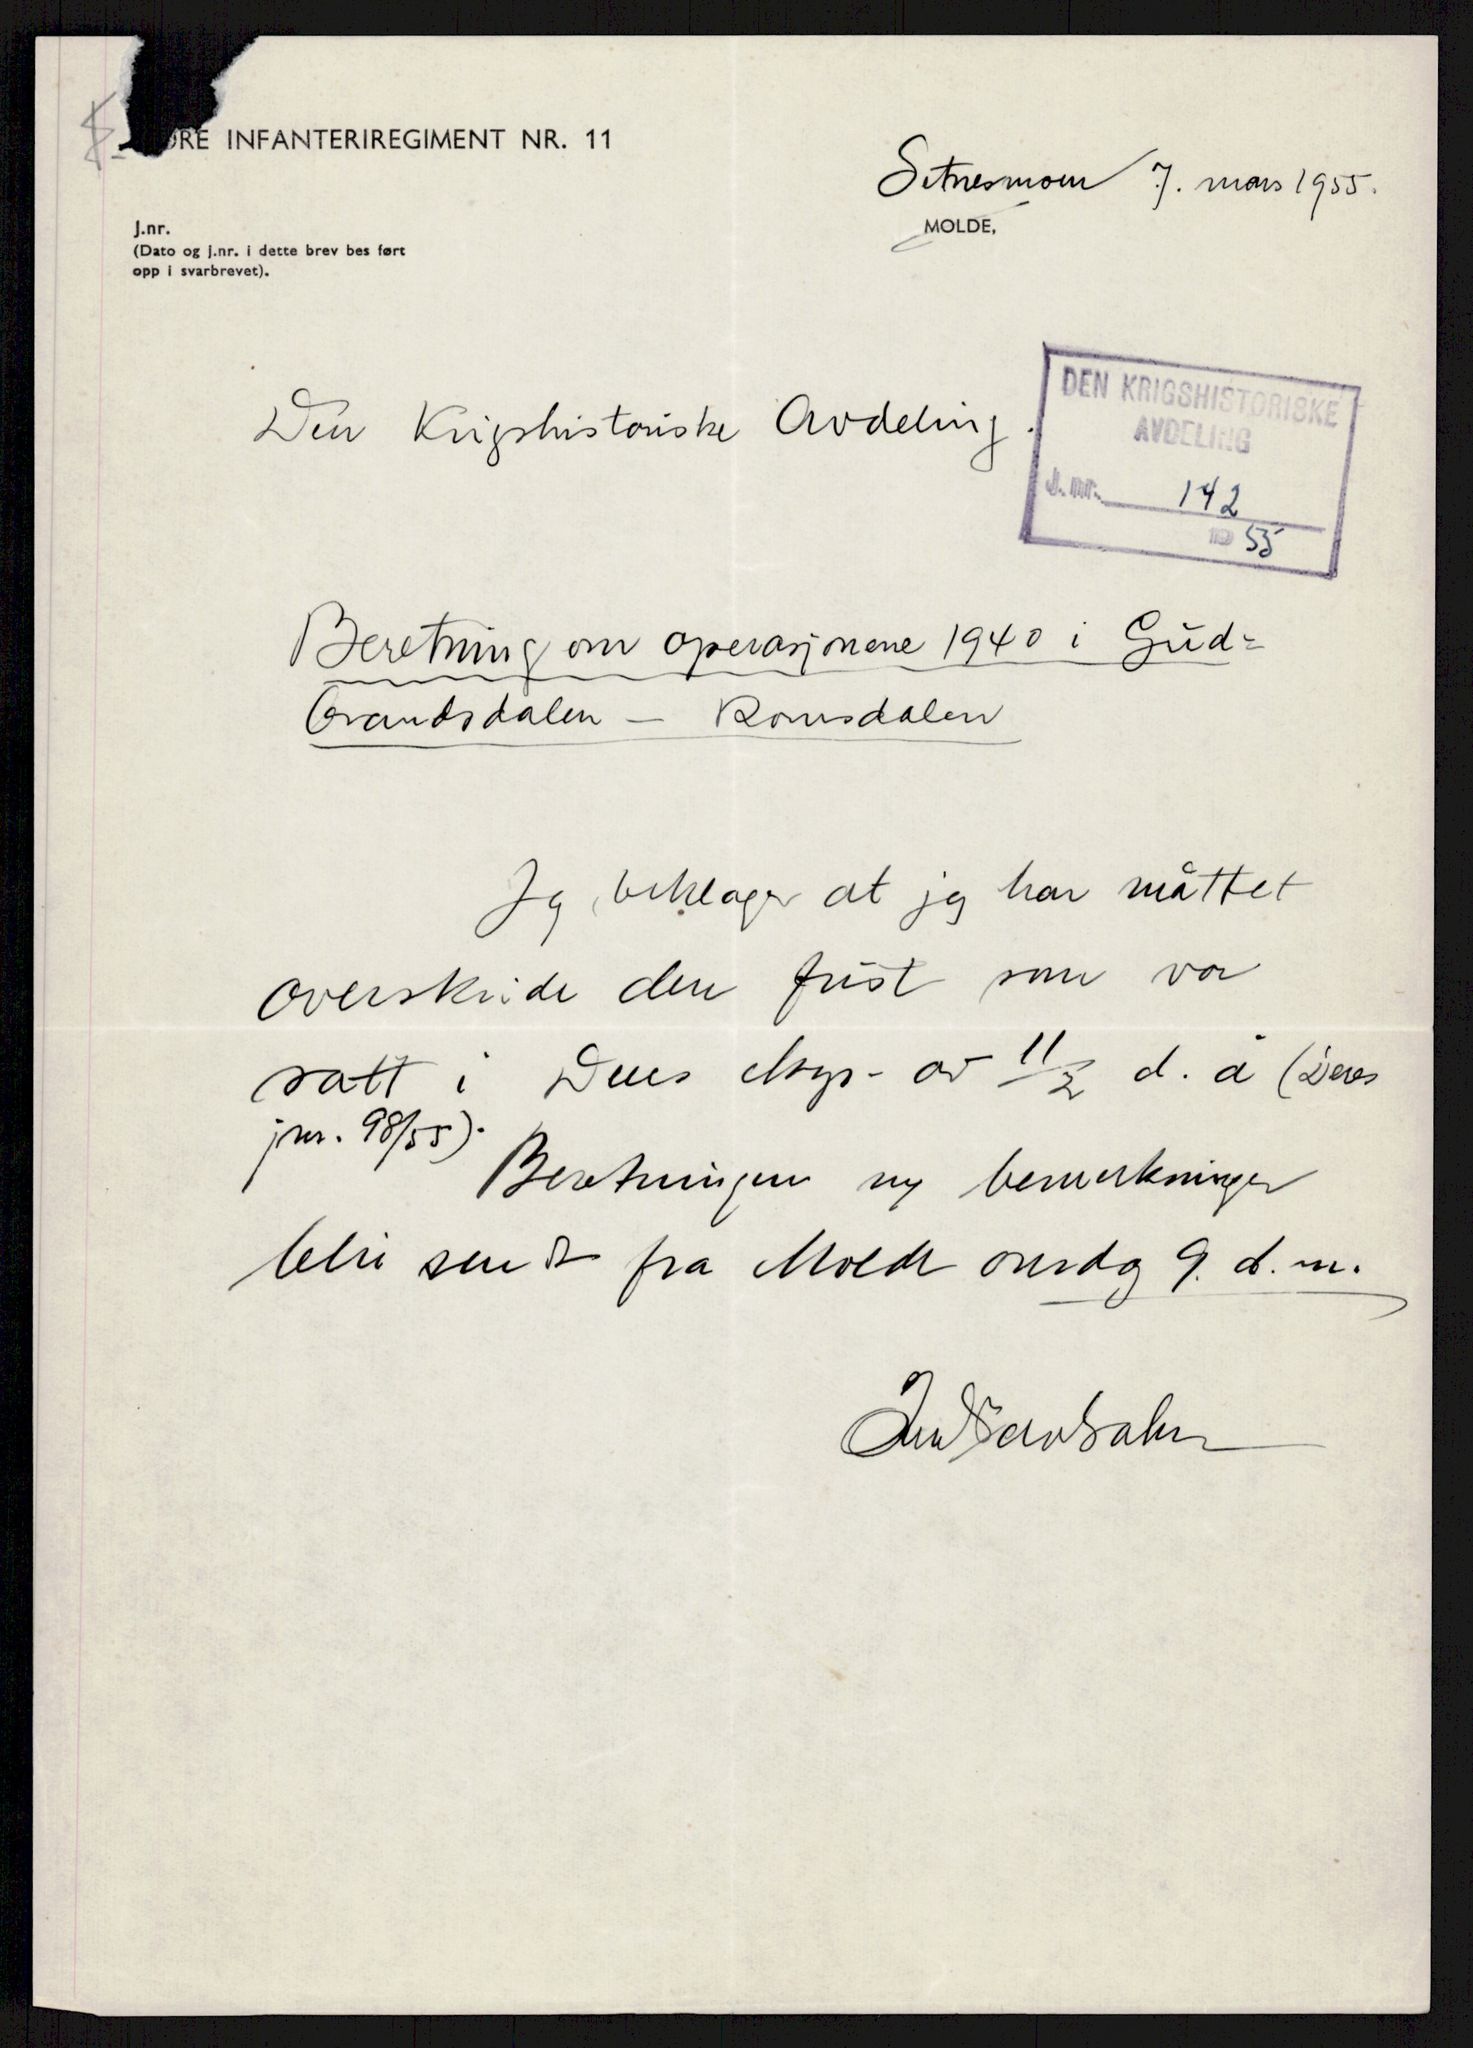 ØRE INFANTERIREGIMENT NR. 11
Setnesmoen 7. mars 1955.
MOLDE,
J.nr.
(Dato og j.nr. i dette brev bes ført
opp i svarbrevet).
DEN KRIGSHISTORISKE
AVDELING
J. nr. 142
19 55
Den Krigshistoriske Avdeling.
Beretning om operasjonene 1940 i Gud=
brandsdalen – Romsdalen
Jeg beklager at jeg har måttet
overskride den frist som var
satt i Deres eksp. av 11/2 d. å (Deres
jnr. 98/55).
Beretningen m/ bemerkninger
blir sendt fra Molde onsdag 9. d. m.